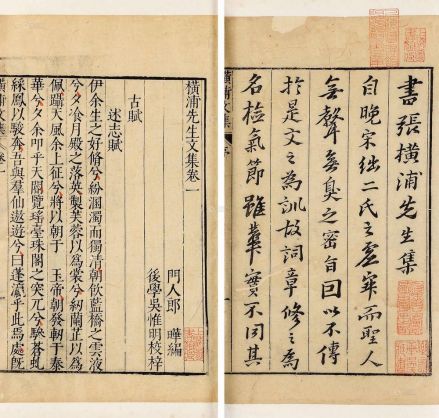 書張橫浦先生集
自晚宋絀二氏之虛寂而聖人
無聲無臭之密旨回以不傳
於是文之為訓故詞章修之為
名檢氣節雖華實不同其
橫浦文集
橫浦先生文集卷一
門人郎 曄編
後學吳惟明校梓
古賦
述志賦
伊余生之好脩兮紛溷濁而獨清朝飲藍橋之雲液
兮夕飡月殿之落英製芙蓉以為裳兮紉蘭芷以為
佩躡天風余上征兮將以朝于 玉帝朝發軔于秦
華兮夕余叩乎天閽覽瑤臺珠閣之突兀兮驂蒼虬
綵鳳以駿奔吾與羣仙遨遊兮曰蓬瀛乎此焉處既
橫浦文集 卷一